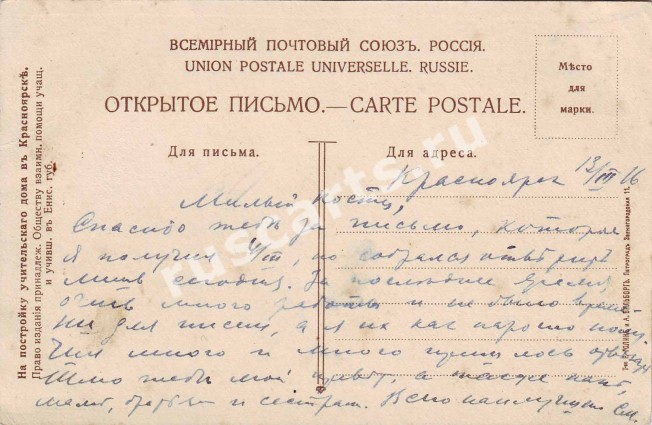 ВСЕМІРНЫЙ ПОЧТОВЫЙ СОЮЗЪ. РОССІЯ.
UNION POSTALE UNIVERSELLE. RUSSIE.
ОТКРЫТОЕ ПИСЬМО.—CARTE POSTALE.
Мѣсто
для
марки.
Для письма.
Для адреса.
На постройку учительскаго дома въ Красноярскѣ.
Право изданія принадлеж. Обществу взаимн. помощи учащ.
и учивш. въ Енис. губ.
Красноярск 13/III 16
Милый Костя,
Спасибо тебе за письмо, которое
я получил /III, но собрался ответить
лишь сегодня. За последнее время
очень много работы и не было време-
ни для писем, а я их как нарочно полу-
чил много и много пришлось отвечать
Шлю тебе мой привет, а также папе,
маме, братьям и сестрам. Всего наилучшего
ruscarts.ru